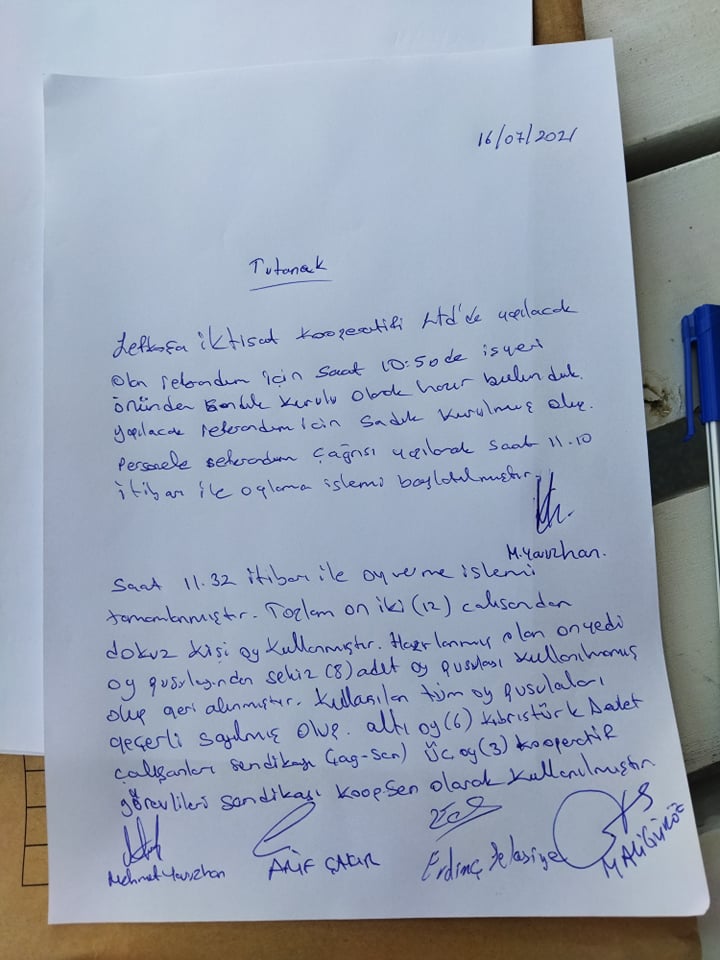 16/07/2021
Tutanak
Lefkoşa iktisat kooperatifi Ltd'de yapılacak
olan referandum için saat 10:50 de işyeri
önünden Sandık kurulu olarak hazır bulunduk.
yapılacak referandum için Sadık kurulmuş olup.
Personele referandum çağrısı yapılarak saat 11.10
itibarı ile oylama işlemi başlatılmıştır.
M.Yavuzhan.
Saat 11.32 itibarı ile oy verme işlemi
tamamlanmıştır. Toplam on iki (12) çalışandan
dokuz kişi oy kullanmıştır. Hazırlanmış olan onyedi
oy pusulasından sekiz (8) adet oy pusulası kullanılmamış
olup geri alınmıştır. kullanılan tüm oy pusulaları
geçerli sayılmış olup. altı oy (6) kıbrıstürk Devlet
çalışanları sendikası (çağ-sen) Üç oy (3) kooperatif
görevlileri sendikası koop-sen olarak kullanılmıştır.
Mehmet Yavuzhan ARİF ÇAKIR Erdinç M ALİ GÜRÖZ